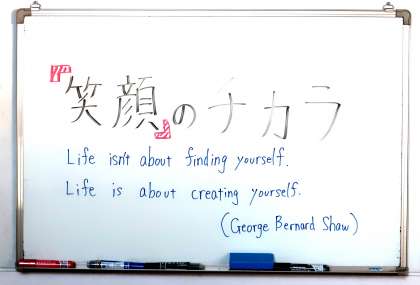 『笑顔』のチカラ
Life isn't about finding yourself.
Life is about creating yourself.
(George Bernard Shaw)